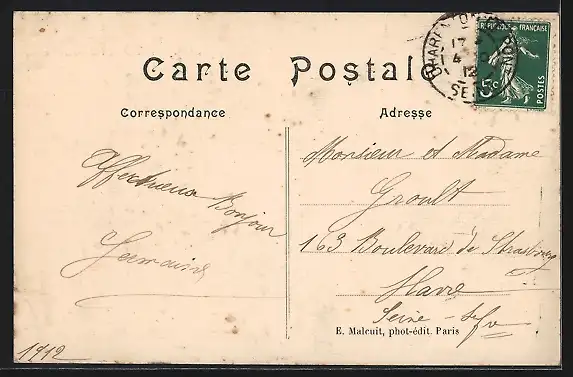 Carte Postale
Correspondance
Adresse
Affectueux Bonjour
Germaine
1912
Monsieur et Madame
Groult
163 Boulevard de Strasbourg
Havre
Seine-Infre
E. Malcuit, phot-édit. Paris
RÉPUBLIQUE FRANÇAISE
5c
POSTES
CHARENTON
17
4
12
SEINE